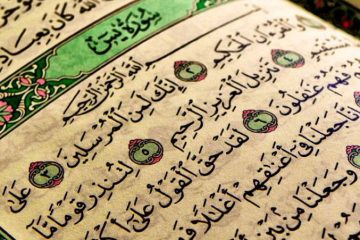 ٱللَّهَ كَانَ بِعِبَادِ
سُورَةُ يسٓ
بِسْمِ ٱللَّهِ ٱلرَّحْمَٰنِ ٱلرَّحِيمِ
وَٱلْقُرْءَانِ ٱلْحَكِيمِ ٢ إِنَّكَ لَمِنَ ٱلْمُرْسَلِينَ ٣ عَلَىٰ
مُّسْتَقِيمٍ ٤ تَنزِيلَ ٱلْعَزِيزِ ٱلرَّحِيمِ ٥ لِتُنذِرَ قَوْمًا مَّآ
فَهُمْ غَٰفِلُونَ ٦ لَقَدْ حَقَّ ٱلْقَوْلُ عَلَىٰٓ
إِنَّا جَعَلْنَا فِىٓ أَعْنَٰقِهِمْ أَغْلَٰلًا
وَجَعَلْنَا مِنۢ بَيْنِ